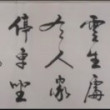 雲生處
有人家
停車坐